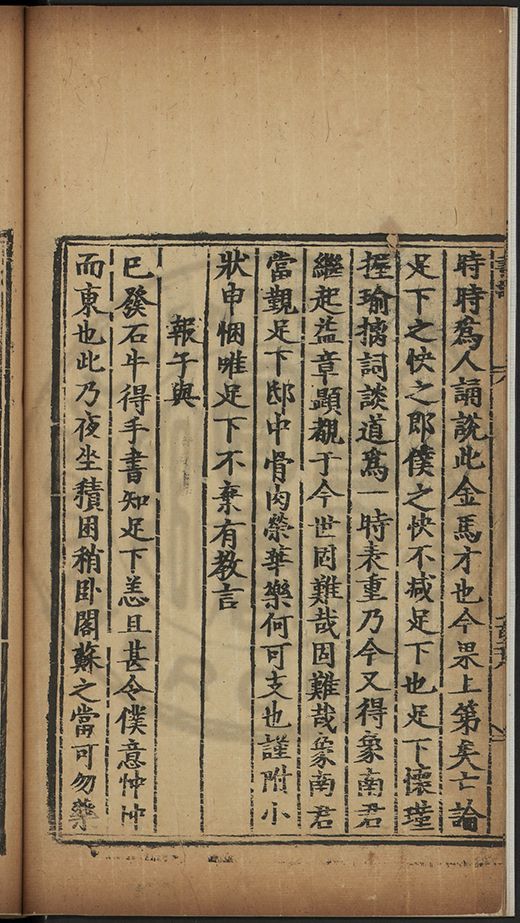 時時為人誦說此金馬才也今果上第矣亡論
足下之快之即僕之快不减足下也足下懷瑾
握瑜摛詞談道為一時表重乃今又得象南君
繼起益章顯覩于今世固難哉固難哉象南君
當覲足下邸中骨肉榮華樂何可支也謹附小
狀申悃唯足下不棄有教言
報午與
已發石牛得手書知足下恙且甚令僕意忡忡
而東也此乃夜坐積困稍卧閣蘇之當可勿藥